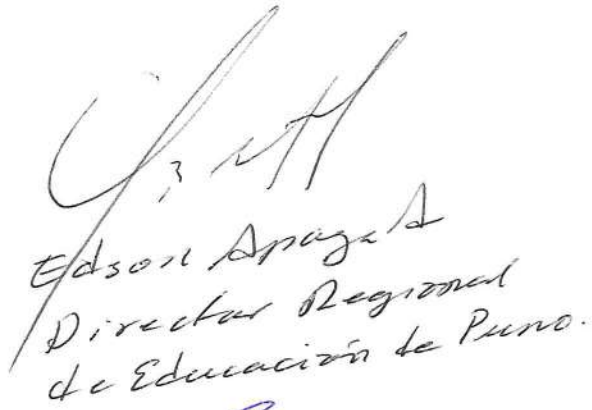 Edson Apaza A
Director Regional
de Educación de Puno.